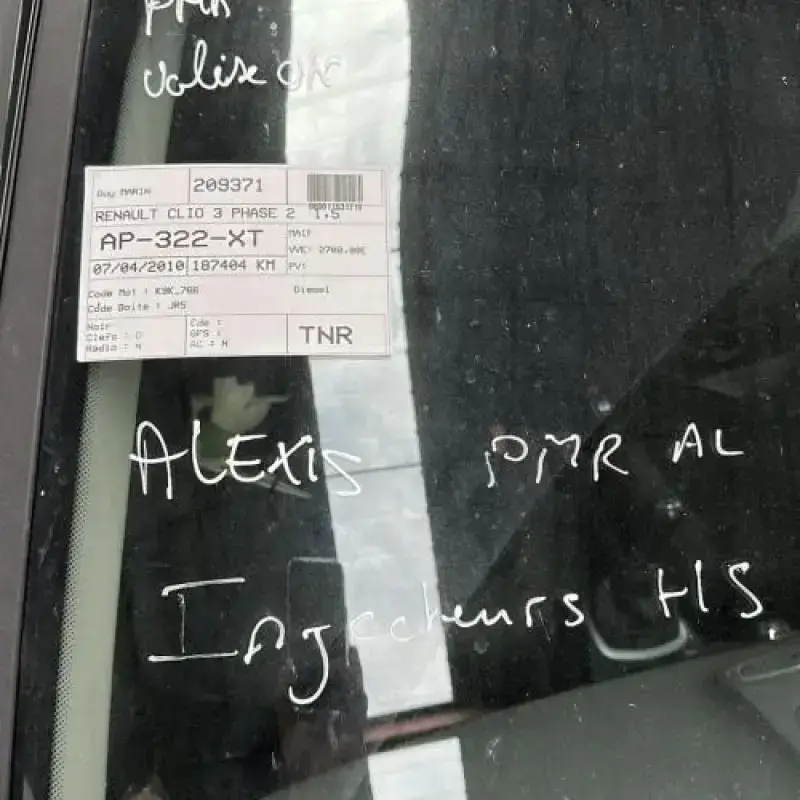 PMR
valise OK
Guy MARIN 209371
RENAULT CLIO 3 PHASE 2 1,5
AP-322-XT MAIF
VVE: 2700.00E
07/04/2010 187404 KM PV:
Code Mot : K9K_766 Diesel
Code Boite : JR5
Noir Cde :
Clefs : O GPS :
Radio : N AC = N
TNR
ALEXIS PMR AL
Injecteurs HS